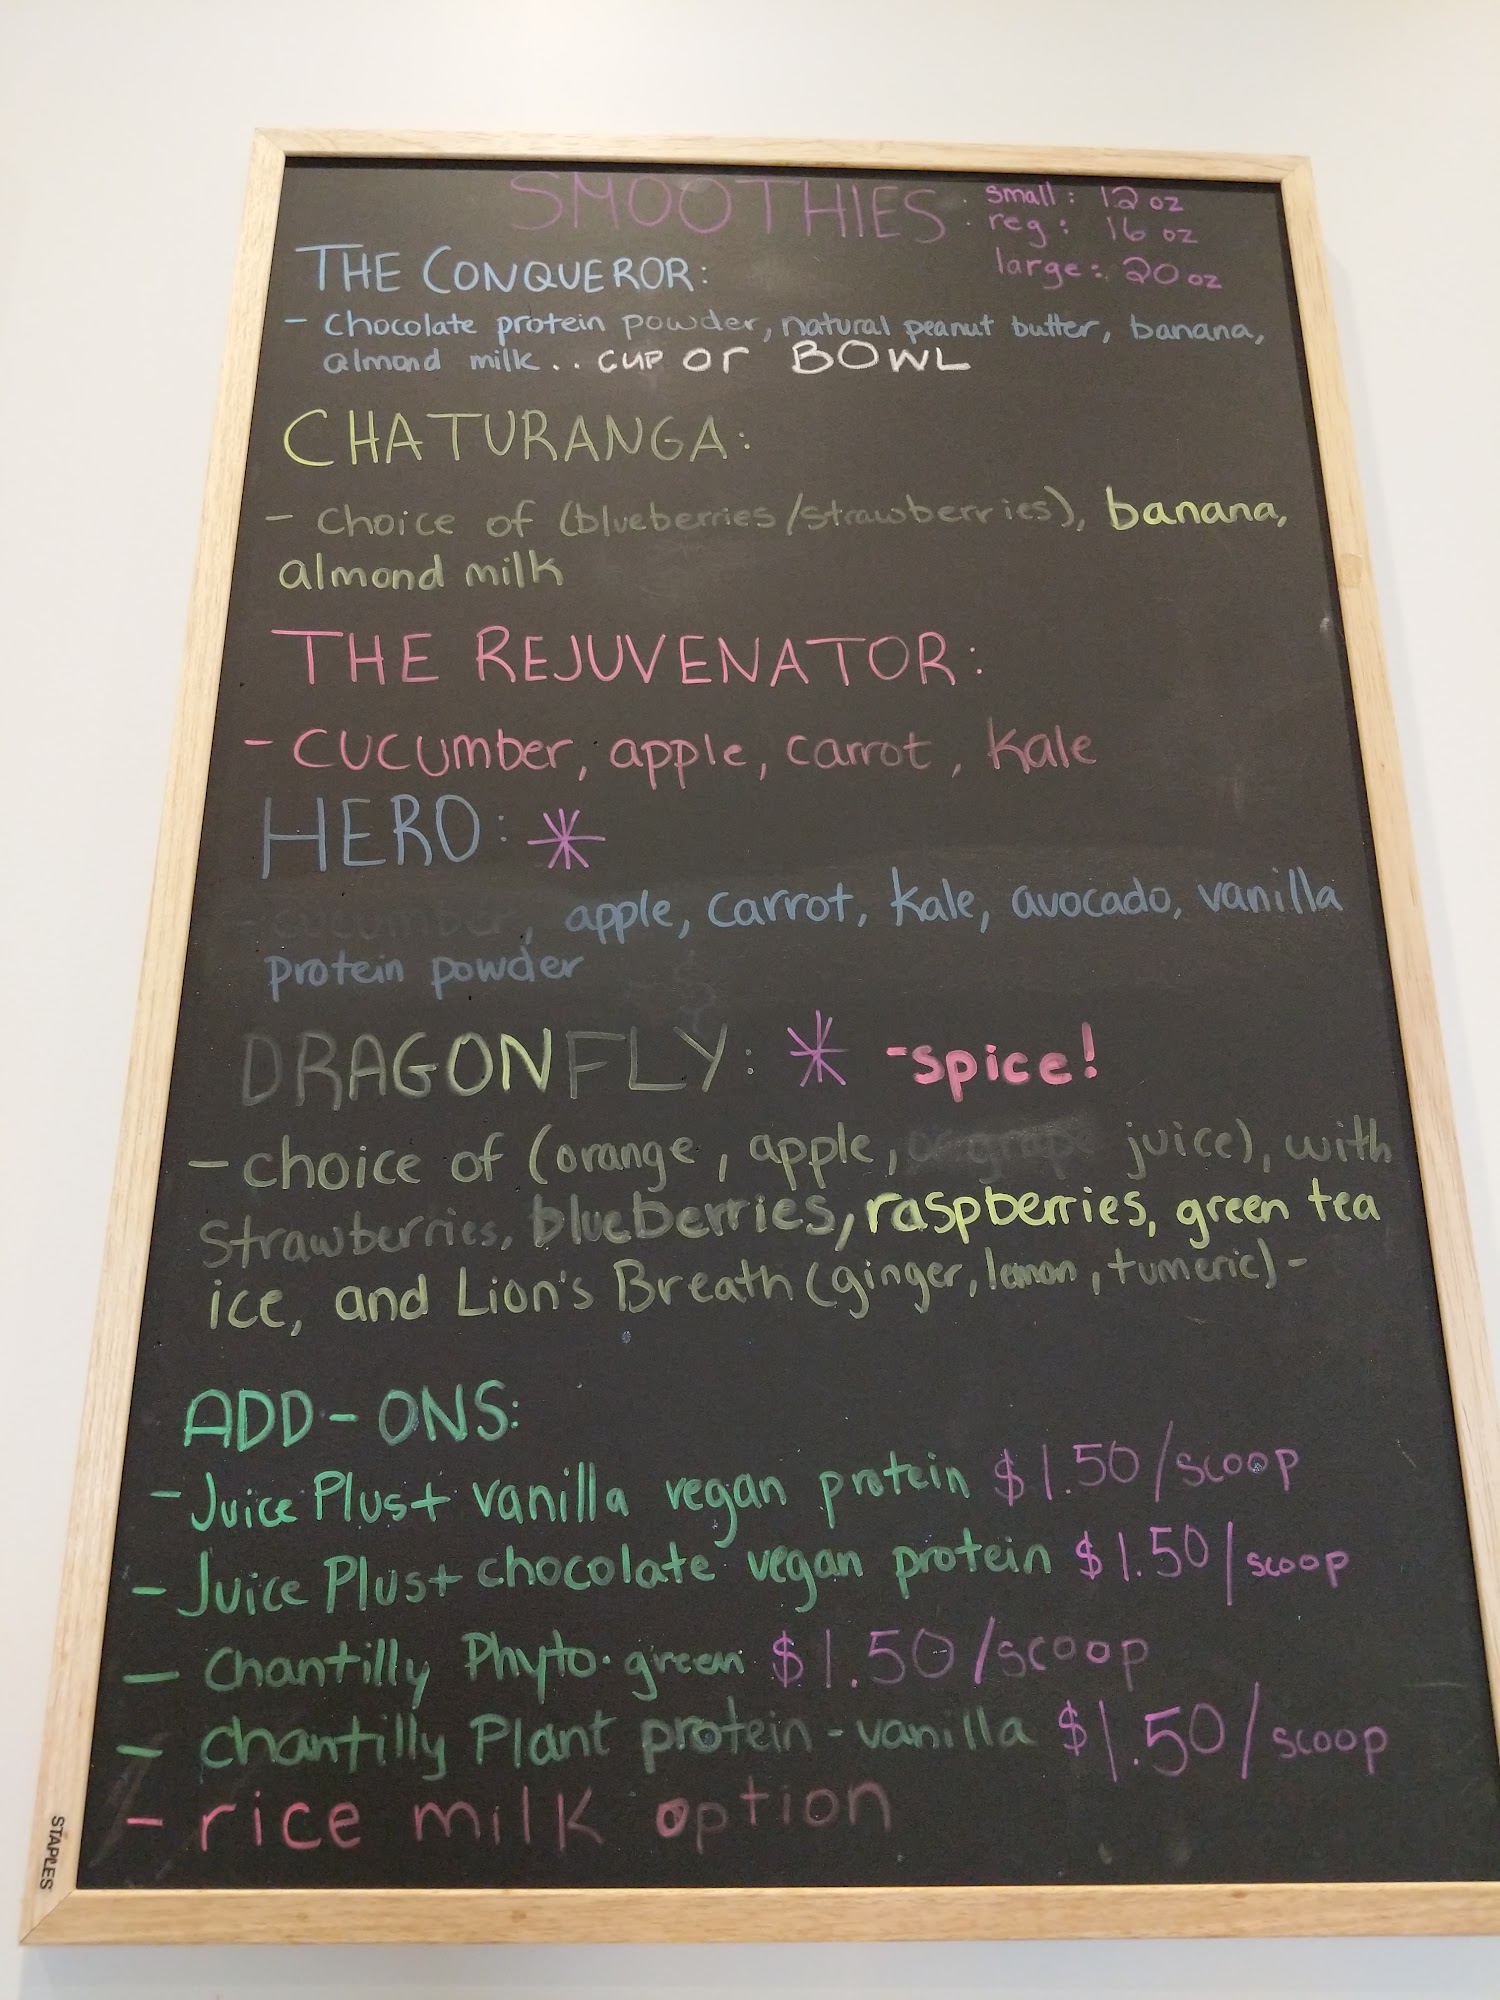 SMOOTHIES
small: 12 oz
reg: 16 oz
large: 20 oz
THE CONQUEROR:
- chocolate protein powder, natural peanut butter, banana,
almond milk.. cup or BOWL
CHATURANGA:
- choice of (blueberries/strawberries), banana,
almond milk
THE REJUVENATOR:
- cucumber, apple, carrot, kale
HERO: *
- cucumber, apple, carrot, kale, avocado, vanilla
protein powder
DRAGONFLY: * -spice!
- choice of (orange, apple, or grape juice), with
strawberries, blueberries, raspberries, green tea
ice, and Lion's Breath (ginger, lemon, tumeric) -
ADD-ONS:
- Juice Plus+ vanilla vegan protein $1.50/scoop
- Juice Plus+ chocolate vegan protein $1.50/scoop
- Chantilly Phyto·green $1.50/scoop
- chantilly Plant protein-vanilla $1.50/scoop
- rice milk option
STAPLES